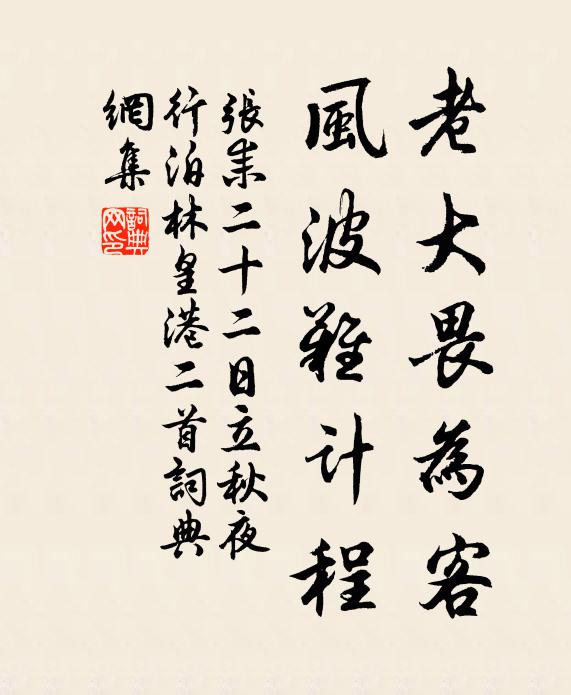 老大畏為客
風波難計程
張耒二十二日立秋夜
行泊林皇港二首詞典
網集
詞典网印